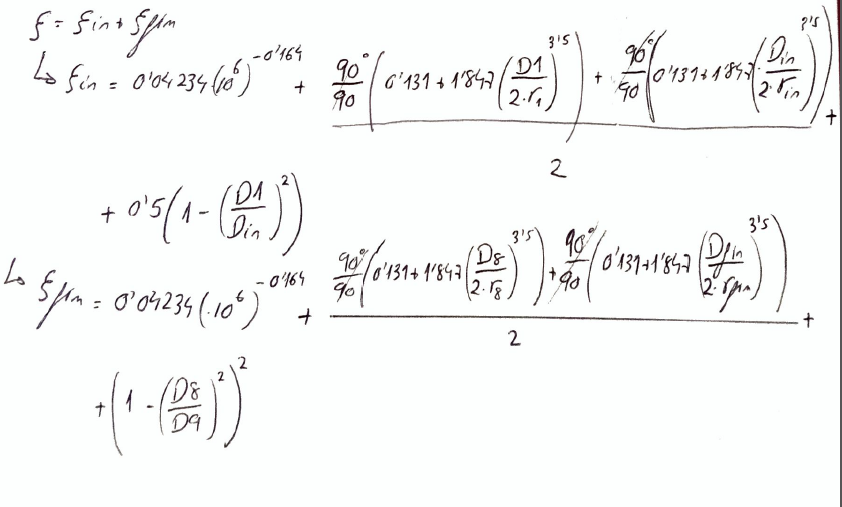 ξ = ξin + ξfin
↳ ξin = 0'04234(10^6)^-0'164 + (90°/90 (0'131 + 1'847 (D1/2·r1)^3'5) + 90°/90 (0'131 + 1'847 (Din/2·rin)^3'5))/2 +
+ 0'5(1 - (D1/Din)^2)
↳ ξfin = 0'04234(·10^6)^-0'164 + (90°/90 (0'131 + 1'847 (D8/2·r8)^3'5) + 90°/90 (0'131 + 1'847 (Dfin/2·rfin)^3'5))/2 +
+ (1 - (D8/D9)^2)^2